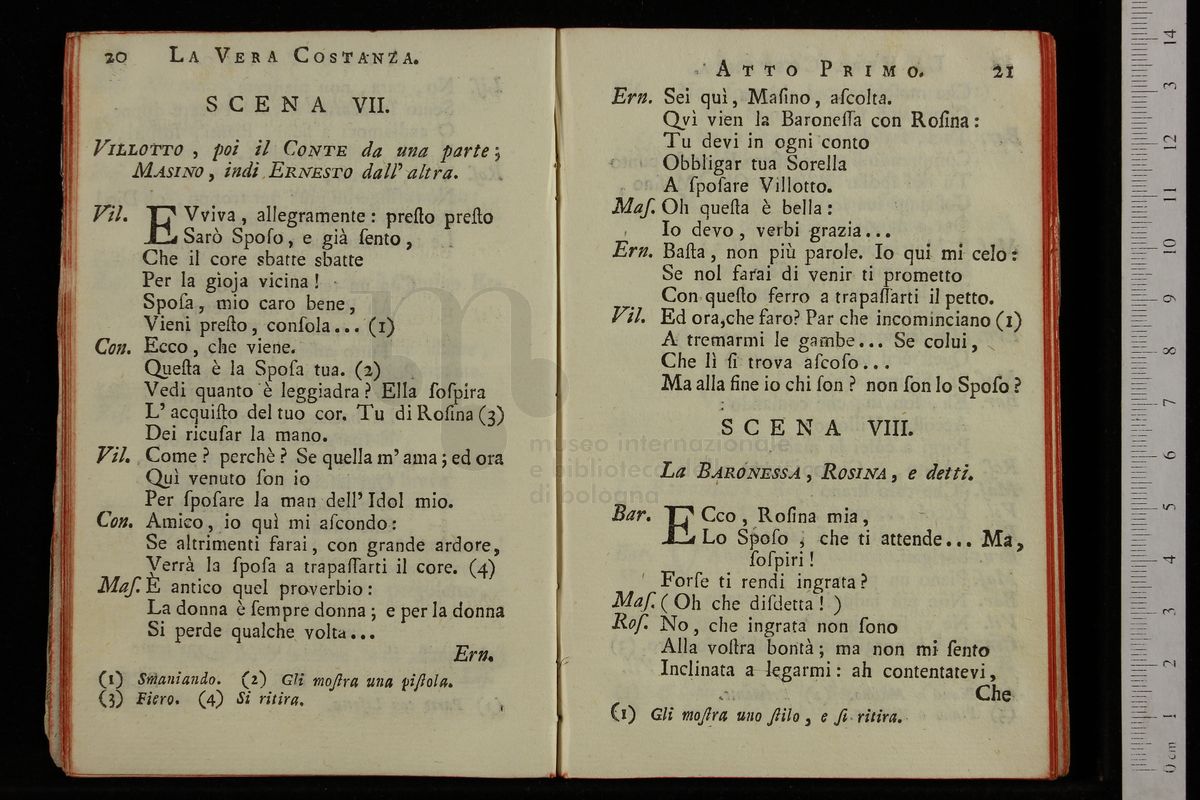 20 LA VERA COSTANZA.
SCENA VII.
VILLOTTO , poi il CONTE da una parte ;
MASINO , indi ERNESTO dall' altra.
Vil. EVviva , allegramente : preſto preſto
Sarò Spoſo , e già ſento ,
Che il core sbatte sbatte
Per la gioja vicina !
Spoſa , mio caro bene ,
Vieni preſto , conſola... (1)
Con. Ecco , che viene.
Queſta è la Spoſa tua. (2)
Vedi quanto è leggiadra ? Ella ſoſpira
L' acquiſto del tuo cor. Tu di Roſina (3)
Dei ricuſar la mano.
Vil. Come ? perchè ? Se quella m' ama ; ed ora
Quì venuto ſon io
Per ſpoſare la man dell' Idol mio.
Con. Amico , io quì mi aſcondo :
Se altrimenti farai , con grande ardore,
Verrà la ſpoſa a trapaſſarti il core. (4)
Maſ. È antico quel proverbio :
La donna è ſempre donna ; e per la donna
Si perde qualche volta...
Ern.
(1) Smaniando. (2) Gli moſtra una piſtola.
(3) Fiero. (4) Si ritira.
ATTO PRIMO. 21
Ern. Sei quì , Maſino , aſcolta.
Qvì vien la Baroneſſa con Roſina :
Tu devi in ogni conto
Obbligar tua Sorella
A ſpoſare Villotto.
Maſ. Oh queſta è bella :
Io devo , verbi grazia...
Ern. Baſta , non più parole. Io qui mi celo :
Se nol farai di venir ti prometto
Con queſto ferro a trapaſſarti il petto.
Vil. Ed ora,che faro? Par che incominciano (1)
A tremarmi le gambe... Se colui ,
Che lì ſi trova aſcoſo...
Ma alla fine io chi ſon ? non ſon lo Spoſo ?
SCENA VIII.
La BARONESSA , ROSINA , e detti.
Bar. ECco , Roſina mia ,
Lo Spoſo , che ti attende... Ma,
ſoſpiri !
Forſe ti rendi ingrata ?
Maſ. ( Oh che diſdetta ! )
Roſ. No , che ingrata non ſono
Alla voſtra bontà ; ma non mi ſento
Inclinata a legarmi : ah contentatevi ,
Che
(1) Gli moſtra uno ſtilo , e ſi ritira.
museo internazionale
e biblioteca della musica
di bologna
0 cm 1 2 3 4 5 6 7 8 9 10 11 12 13 14